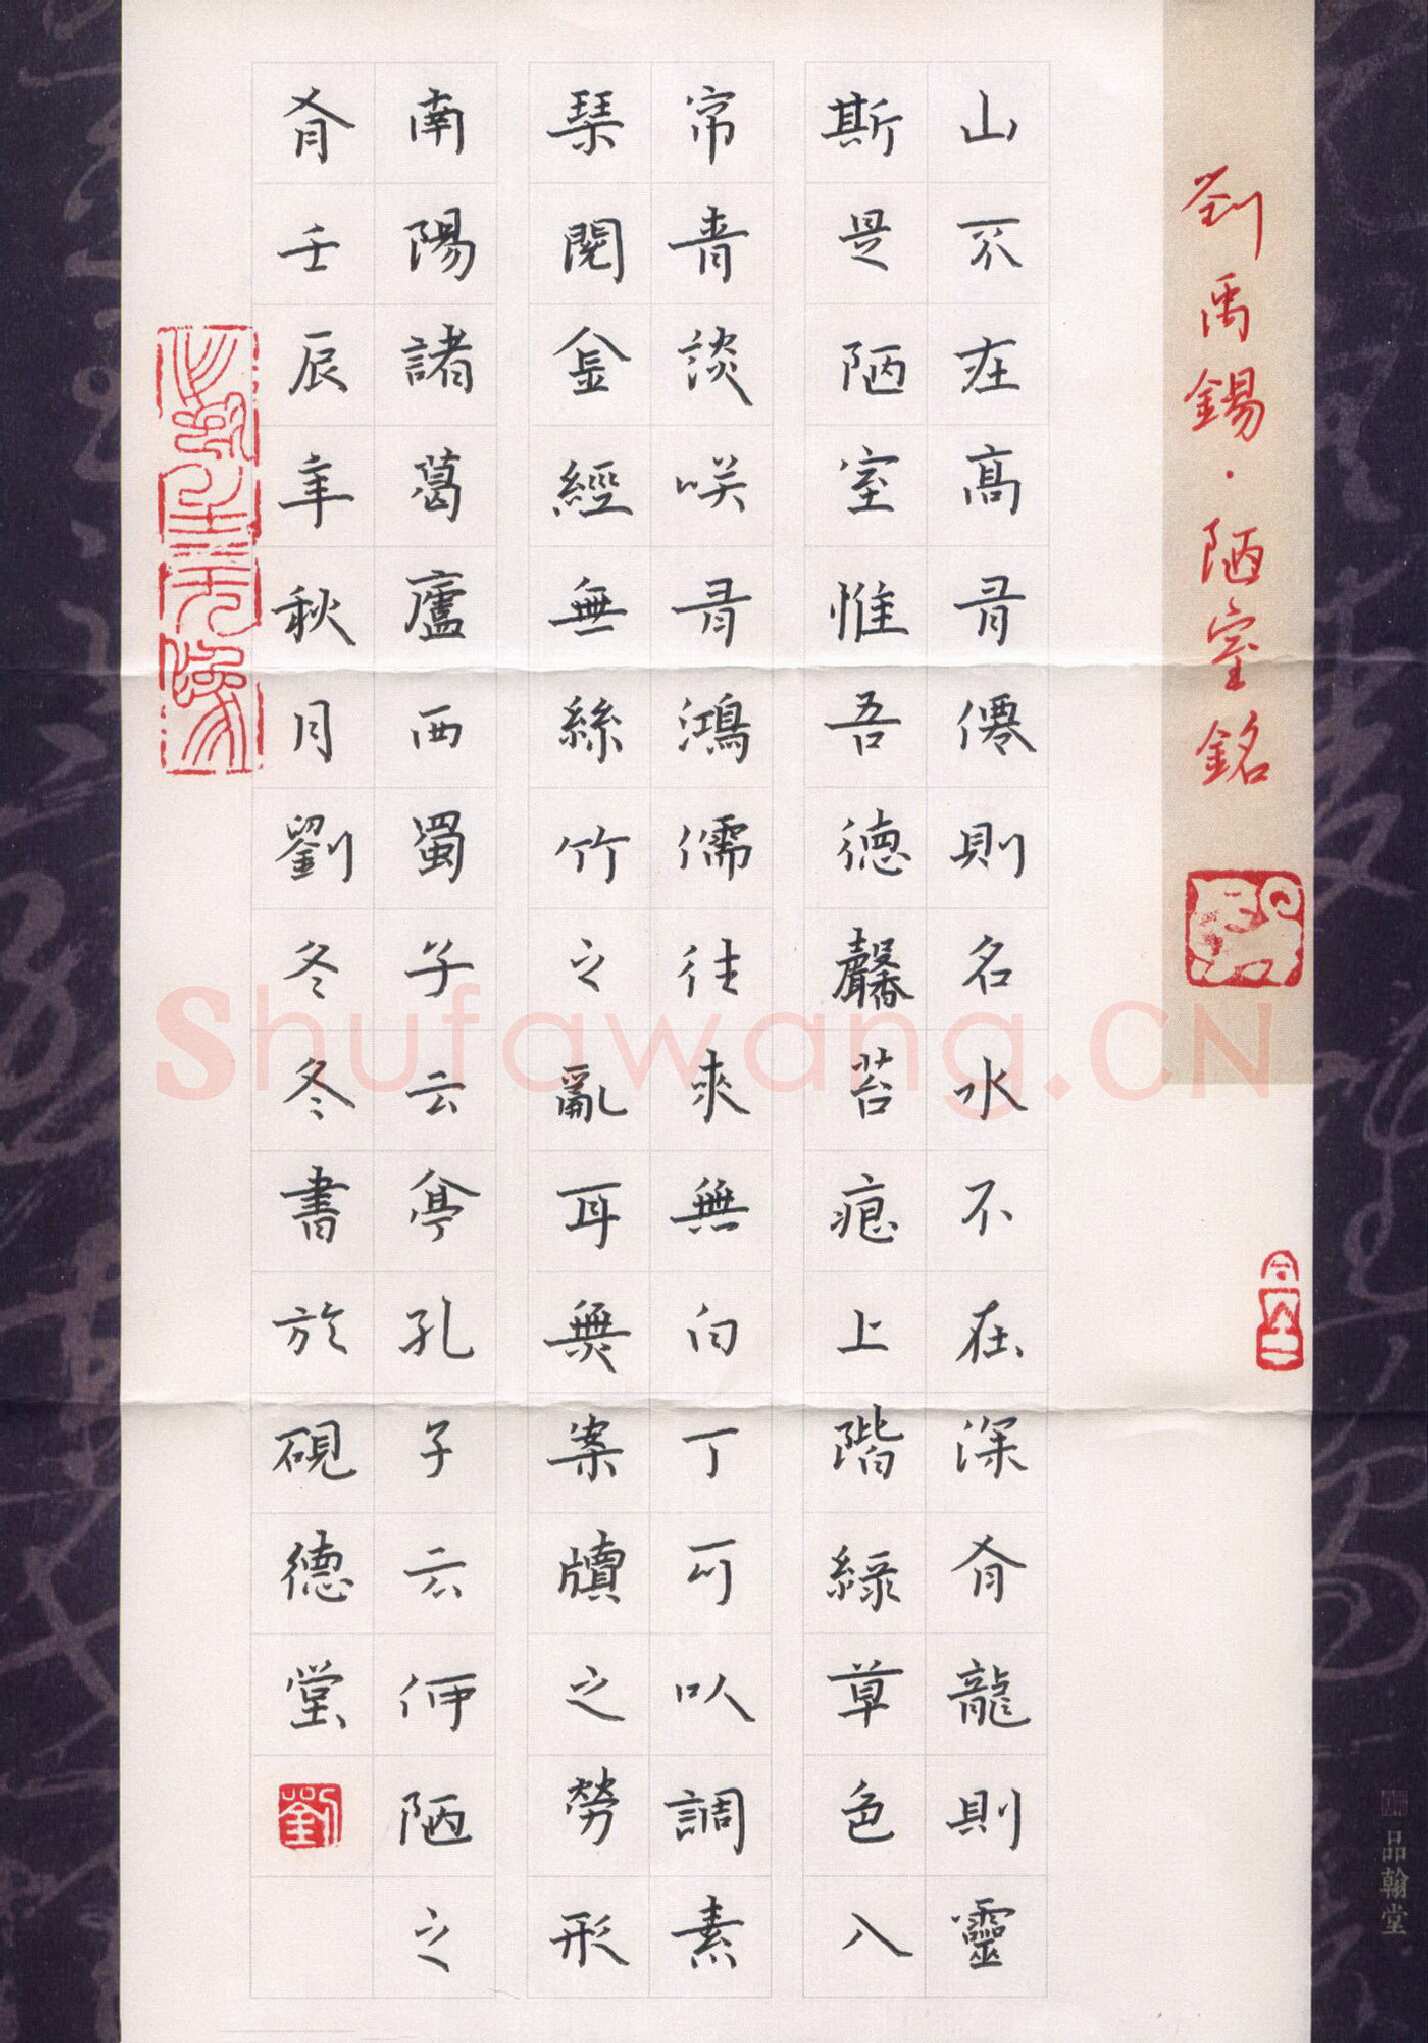 劉禹錫·陋室銘
山不在高有僊則名水不在深有龍則靈
斯是陋室惟吾德馨苔痕上階綠草色入
帘青談咲有鴻儒往來無白丁可以調素
琹閱金經無絲竹之亂耳無案牘之勞形
南陽諸葛廬西蜀子云亭孔子云何陋之
有壬辰年秋月劉冬冬書於硯德堂
劉
品翰堂
Shufawang.CN